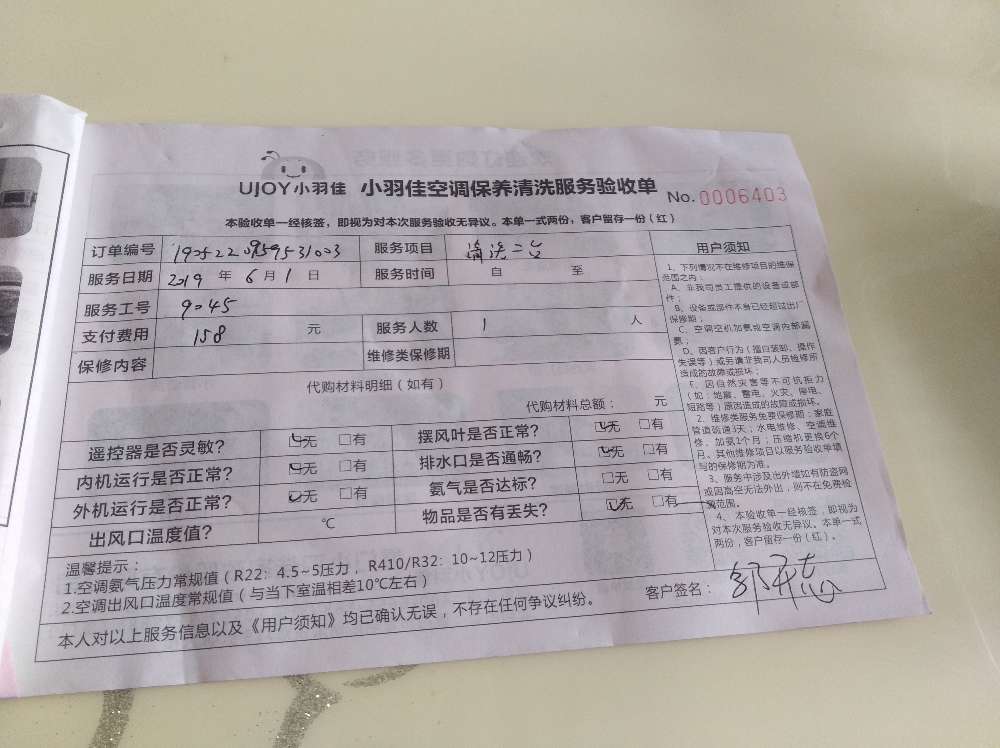 UJOY小羽佳 小羽佳空调保养清洗服务验收单 No.0006403
本验收单一经核签，即视为对本次服务验收无异议。本单一式两份，客户留存一份（红）
订单编号 服务项目 清洗二台
服务日期 2019 年 6 月 1 日 服务时间 自 至
服务工号 9045
支付费用 158 元 服务人数 1 人
保修内容 维修类保修期
代购材料明细（如有）
代购材料总额： 元
遥控器是否灵敏？ 无 □有 摆风叶是否正常？ 无 □有
内机运行是否正常？ 无 □有 排水口是否通畅？ 无 □有
外机运行是否正常？ 无 □有 氨气是否达标？ □无 □有
出风口温度值？ ℃ 物品是否有丢失？ 无 □有
温馨提示：
1.空调氨气压力常规值（R22：4.5~5压力，R410/R32：10~12压力）
2.空调出风口温度常规值（与当下室温相差10℃左右）
本人对以上服务信息以及《用户须知》均已确认无误，不存在任何争议纠纷。
客户签名：
用户须知
1、下列情况不在维修项目的维保
范围之内：
A、非我司员工提供的设备或部
件；
B、设备或部件本身已经超过出厂
保修期；
C、空调空机加氨或空调内部漏
氨；
D、因客户行为（擅自装卸、操作
失误等）或另请非我司人员检修所
造成的故障或损坏；
E、因自然灾害等不可抗拒力
（如：地震、雷电、火灾、停电、
短路等）原因造成的故障或损坏。
2、维修类服务免费保修期：家庭
管道疏通3天；水电维修、空调维
修、加氨1个月；压缩机更换6个
月。其他维修项目以服务验收单填
写的保修期为准。
3、服务中涉及出外墙如有防盗网
或因高空无法外出，则不在免费检
范围。
4、本验收单一经核签，即视为
对本次服务验收无异议。本单一式
两份，客户留存一份（红）。